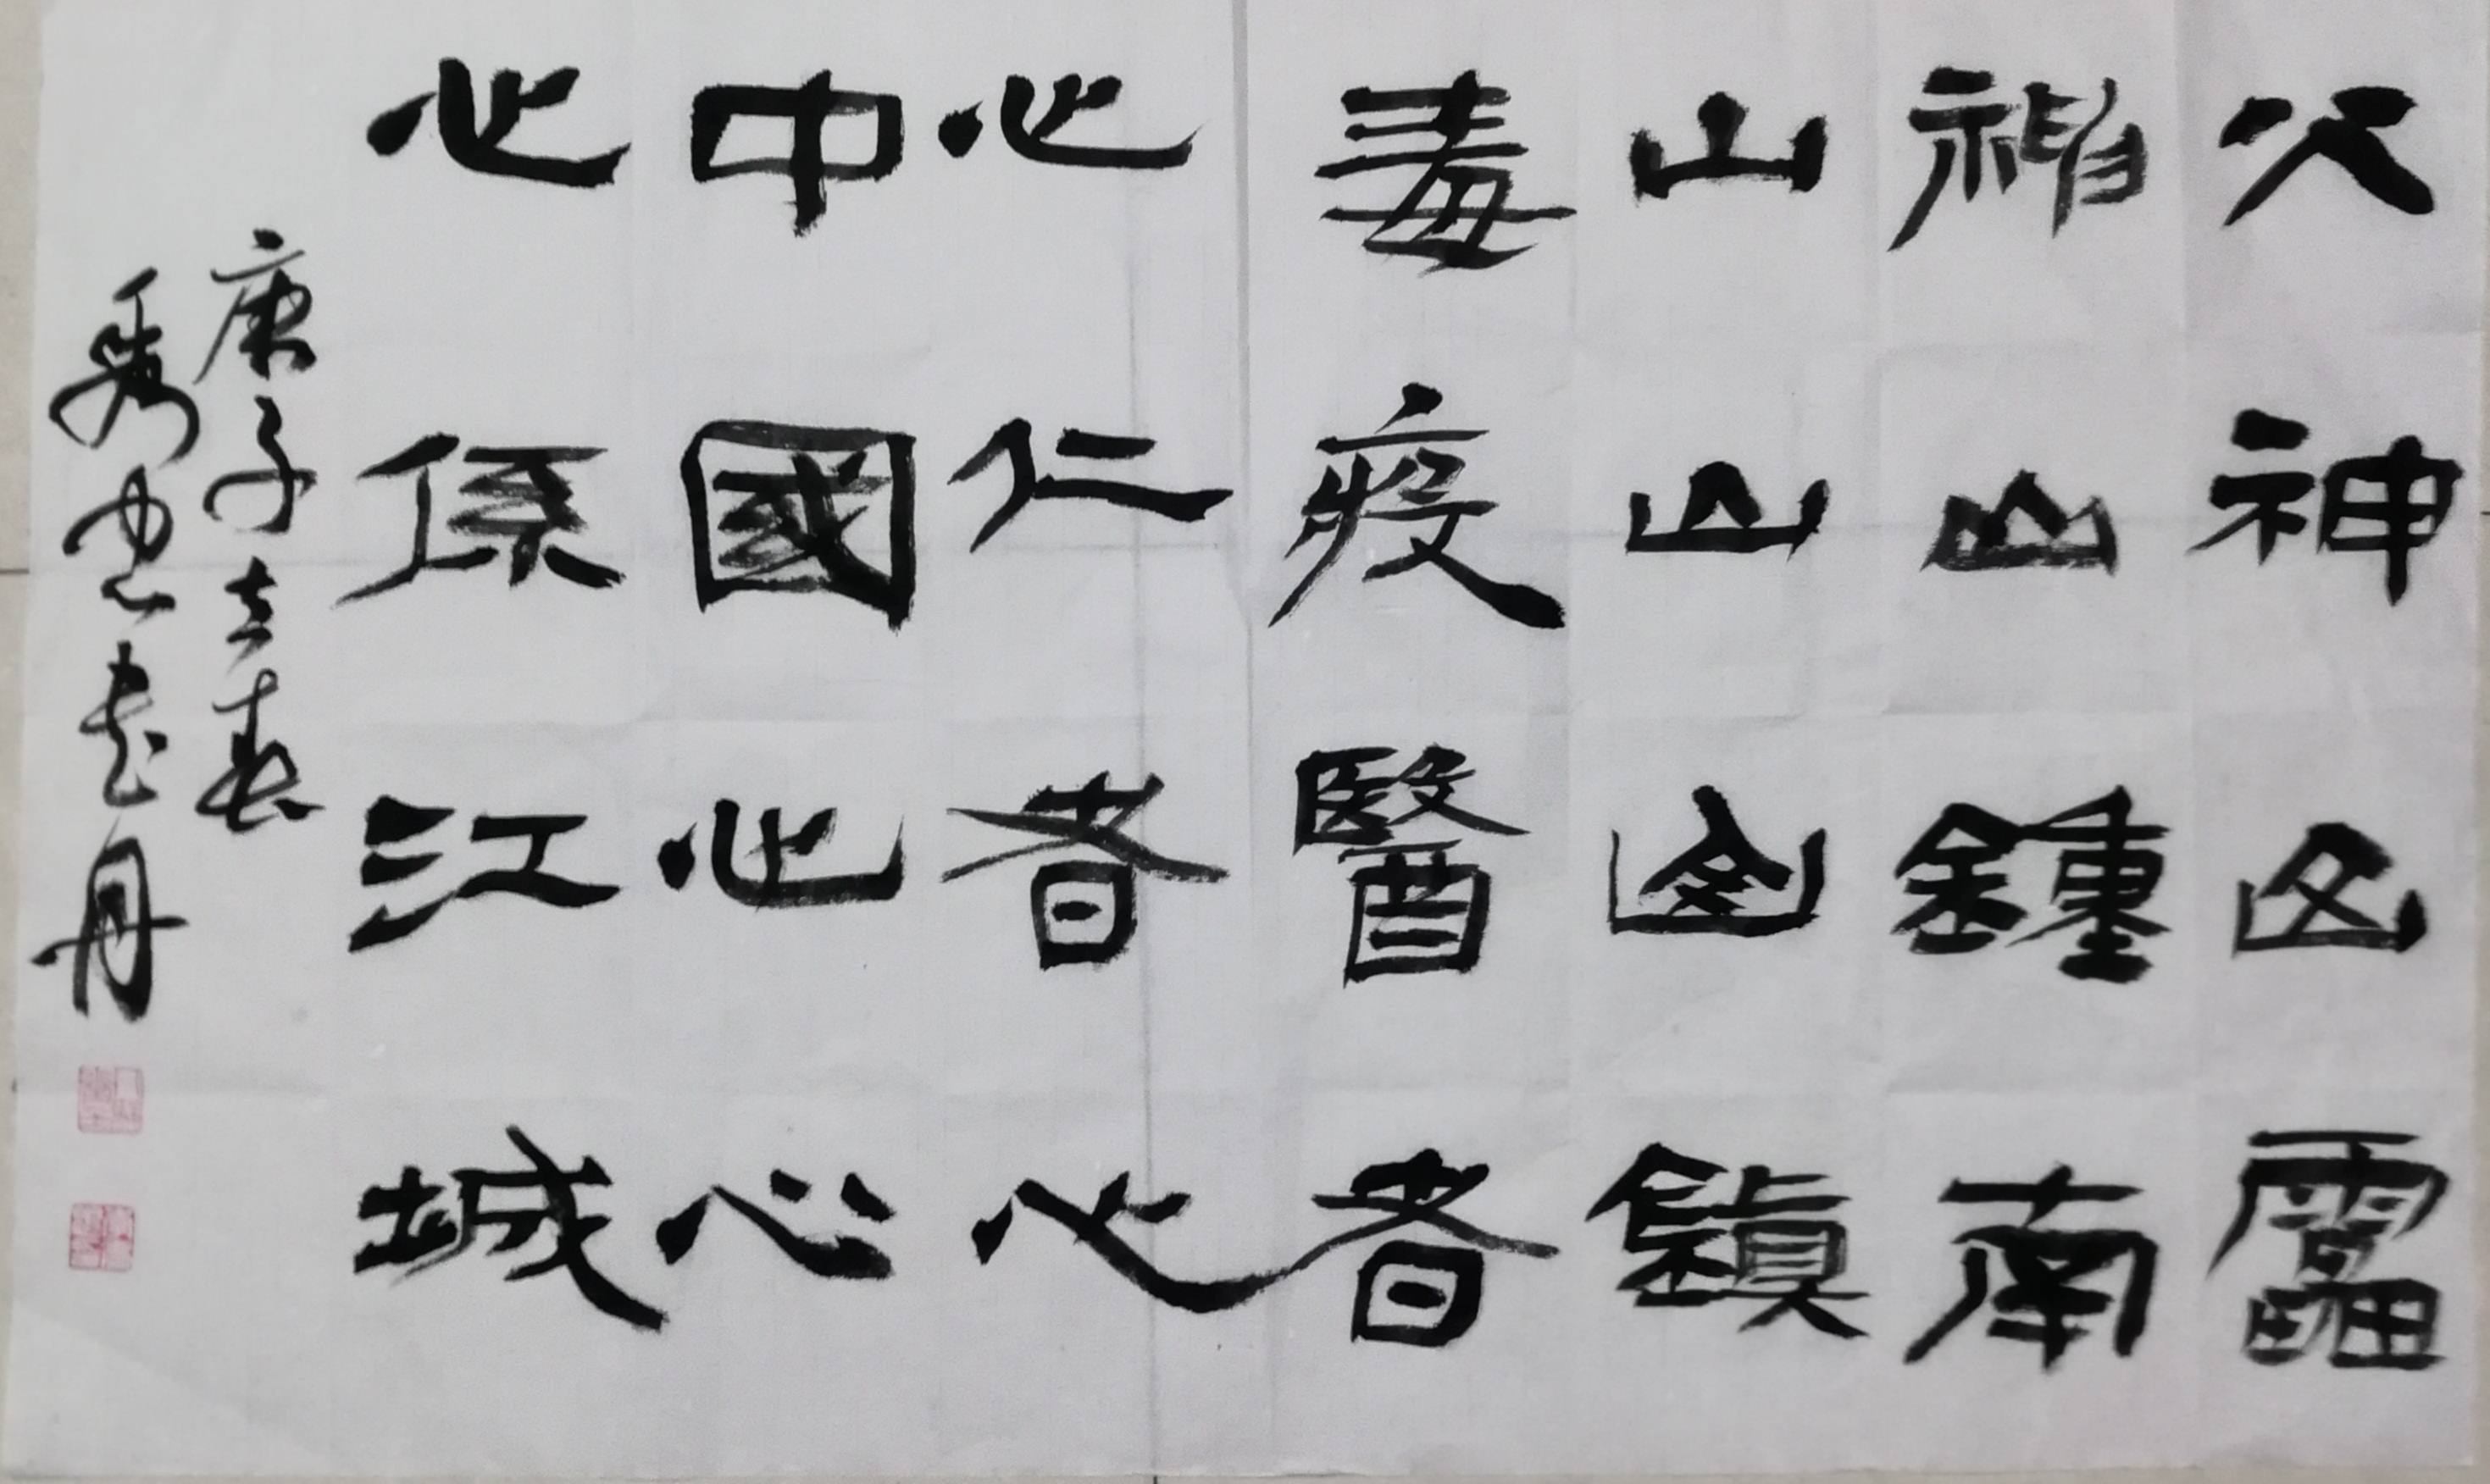 火神山靁
神山鍾南
山山山鎮
毒疫醫者
心仁者心
中國心心
心係江城
庚子立春
書丹